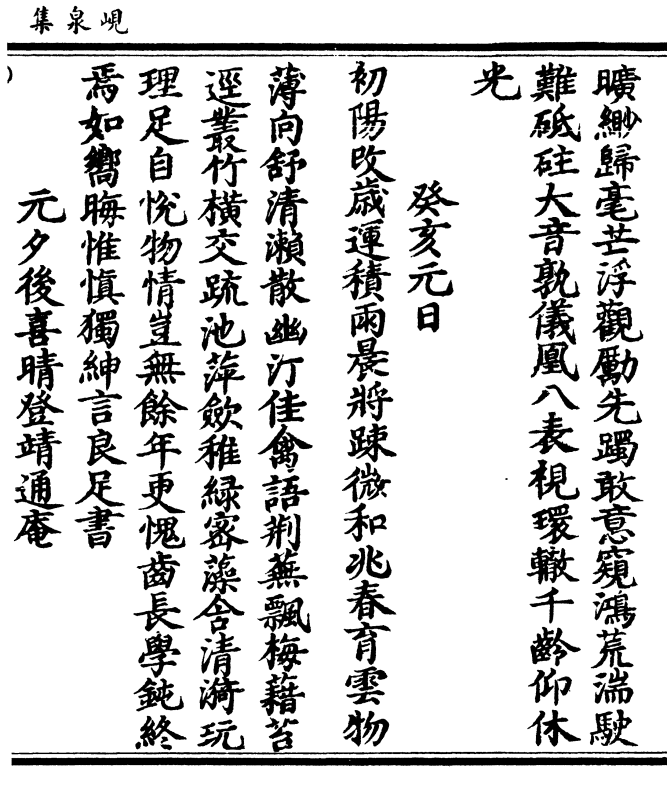 峴泉集
曠緲歸毫芒浮觀勵先躅敢意窺鴻荒湍駛
難砥砫大音孰儀鳳八表視環轍千齡仰休
光
癸亥元日
初陽改歳運積雨晨將踈微和兆春育雲物
薄向舒清瀨散幽汀佳禽語荆蕪飄梅藉苔
逕叢竹橫交疏池萍歛稚緑密藻含清漪玩
理足自悅物情豈無餘年更愧齒長學鈍終
焉如嚮晦惟愼獨紳言良足書
元夕後喜晴登靖通庵